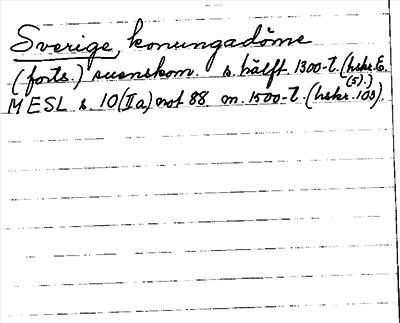 Sverige, konungadöme
(forts.) suenskom. s. hälft. 1300-t. (hskr. E.
(5).)
MESL s. 10 (IIa) not 88 m. 1500-t. (hskr. 103).